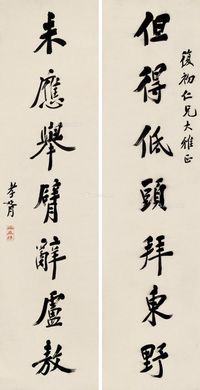 復初仁兄大雅正
但得低頭拜東野
未應舉臂辭盧敖
孝胥